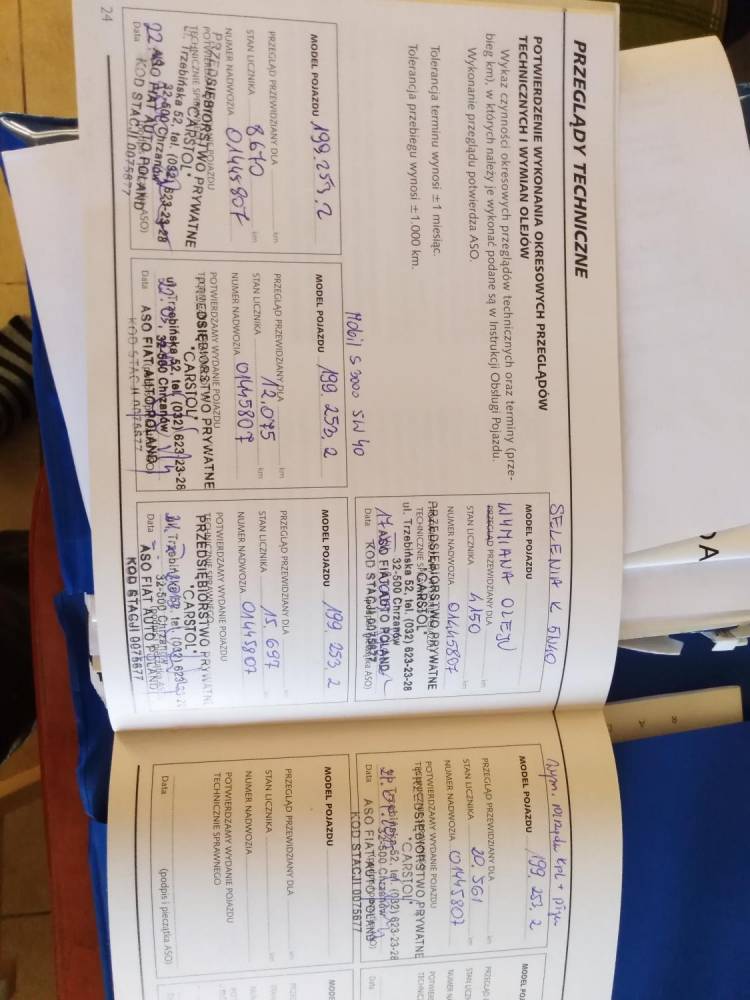 PRZEGLĄDY TECHNICZNE
POTWIERDZENIE WYKONANIA OKRESOWYCH PRZEGLĄDÓW
TECHNICZNYCH I WYMIAN OLEJÓW
Wykaz czynności okresowych przeglądów technicznych oraz terminy (prze-
bieg km), w których należy je wykonać podane są w Instrukcji Obsługi Pojazdu.
Wykonanie przeglądu potwierdza ASO.
Tolerancja terminu wynosi ±1 miesiąc.
Tolerancja przebiegu wynosi ±1.000 km.
SELENIA K 5W40
MODEL POJAZDU
WYMIANA OLEJU
PRZEGLĄD PRZEWIDZIANY DLA
STAN LICZNIKA 4150 km
NUMER NADWOZIA 01445807
PRZEDSIĘBIORSTWO PRYWATNE
"CARSTOL"
ul. Trzebińska 52, tel. (032) 623-23-28
32-500 Chrzanów
ASO FIAT AUTO POLAND
KOD STACJI 0075677
Data 17
MODEL POJAZDU 199.253.2
PRZEGLĄD PRZEWIDZIANY DLA
STAN LICZNIKA 8670 km
NUMER NADWOZIA 01445807
PRZEDSIĘBIORSTWO PRYWATNE
"CARSTOL"
ul. Trzebińska 52, tel. (032) 623-23-28
32-500 Chrzanów
ASO FIAT AUTO POLAND
KOD STACJI 0075677
Data 22
Mobil S 3000 5W40
MODEL POJAZDU 199.253.2
PRZEGLĄD PRZEWIDZIANY DLA km
STAN LICZNIKA 12.075 km
NUMER NADWOZIA 01445807
POTWIERDZAMY WYDANIE POJAZDU
PRZEDSIĘBIORSTWO PRYWATNE
"CARSTOL"
ul. Trzebińska 52, tel. (032) 623-23-28
32-500 Chrzanów
ASO FIAT AUTO POLAND
KOD STACJI 0075677
Data
MODEL POJAZDU 199.253 2
PRZEGLĄD PRZEWIDZIANY DLA km
STAN LICZNIKA 15.697 km
NUMER NADWOZIA 01445807
POTWIERDZAMY WYDANIE POJAZDU
PRZEDSIĘBIORSTWO PRYWATNE
"CARSTOL"
ul. Trzebińska 52, tel. (032) 623-23-28
32-500 Chrzanów
ASO FIAT AUTO POLAND
KOD STACJI 0075677
Data
24
MODEL POJAZDU 199.253.2
PRZEGLĄD PRZEWIDZIANY DLA
STAN LICZNIKA 20.561 km
NUMER NADWOZIA 01445807
POTWIERDZAMY WYDANIE POJAZDU
PRZEDSIĘBIORSTWO PRYWATNE
"CARSTOL"
ul. Trzebińska 52, tel. (032) 623-23-28
32-500 Chrzanów
ASO FIAT AUTO POLAND
KOD STACJI 0075677
Data
MODEL POJAZDU
PRZEGLĄD PRZEWIDZIANY DLA km
STAN LICZNIKA km
NUMER NADWOZIA
POTWIERDZAMY WYDANIE POJAZDU
TECHNICZNIE SPRAWNEGO
Data (podpis i pieczątka ASO)